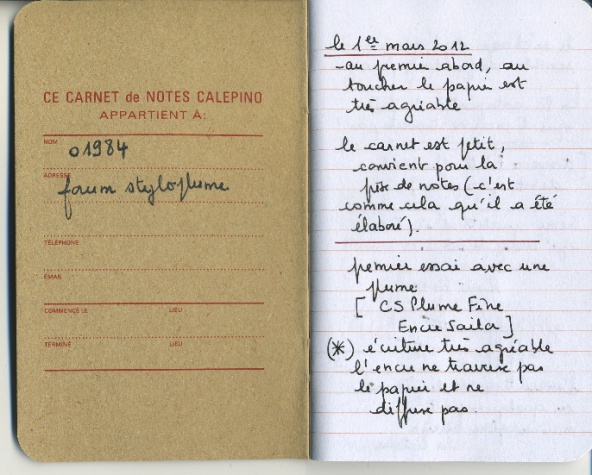 CE CARNET de NOTES CALEPINO
APPARTIENT À:
NOM
o1984
ADRESSE
forum styloplume
TÉLÉPHONE
EMAIL
COMMENCÉ LE LIEU
TERMINÉ LIEU
le 1er mars 2012
- au premier abord, au
toucher le papier est
très agréable
le carnet est petit,
convient pour la
prise de notes (c'est
comme cela qu'il a été
élaboré).
premier essai avec une
plume
[ CS Plume Fine
Encre Sailor ]
(*) écriture très agréable
l'encre ne traverse pas
le papier et ne
diffuse pas.